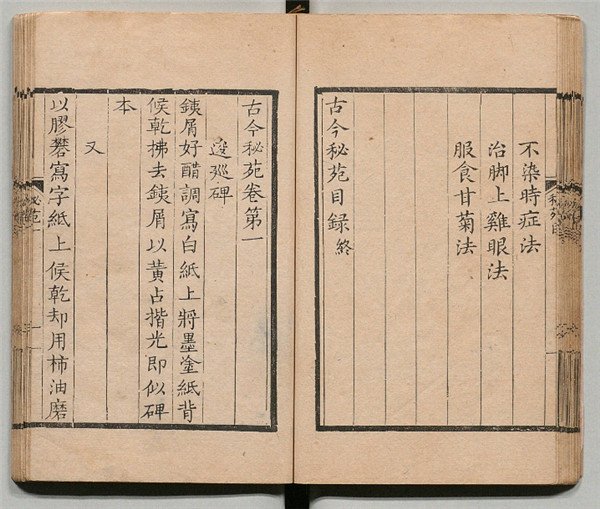 不染時症法
治脚上雞眼法
服食甘菊法
古今秘苑目録終
古今秘苑卷第一
逡廵碑
銕屑好醋調寫白紙上將墨塗紙背
候乾拂去銕屑以黃占揩光即似碑
本
又
以膠礬寫字紙上候乾却用柿油磨
秘苑一